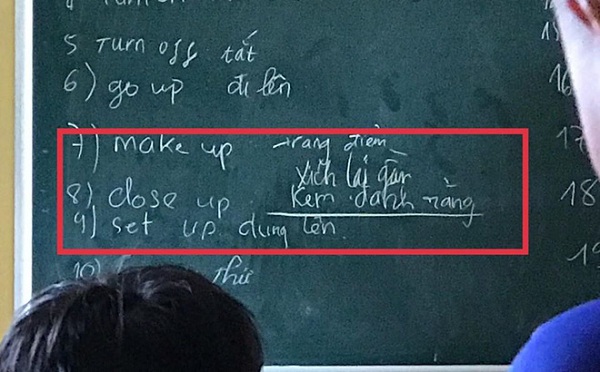 5 Turn off tắt
6) go up đi lên
7) make up trang điểm
xích lại gần
8) close up kem đánh răng
9) set up dựng lên
10) thử
16
17
18
19